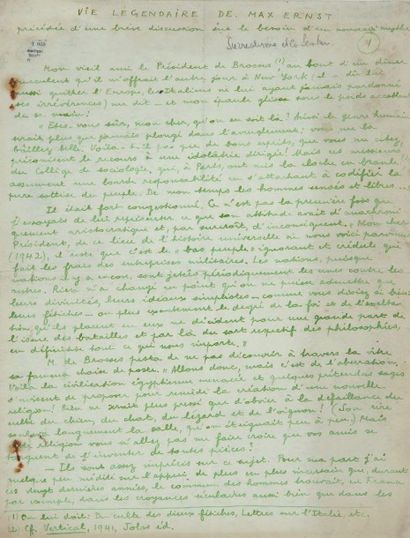 VIE LEGENDAIRE DE MAX ERNST
précédée d'une brève discussion sur le besoin d'un nouveau mythe
Surréalisme et la
1
Mon vieil ami le Président de Brosses (1) au bout d'un dîner
succulent qu'il m'offrait l'autre jour à New York (il a dû lui
aussi quitter l'Europe, les Italiens ne lui ayant jamais pardonné
ses irrévérences) me dit — et mon épaule glissa sous le poids
de sa main :
" Etes-vous sûr, mon cher, qu'on en soit là ? Ainsi le genre humain
serait plus que jamais plongé dans l'aveuglement ; vous me la
baillez belle. Voilà-t-il pas que de bons esprits, que vous me citez,
préconisent le recours à une idolâtrie dirigée ! Mais ces messieurs
du Collège de sociologie, qui, à Paris, ont mis la cloche en branle (2)
assument une lourde responsabilité en s'attachant à codifier la
pure sottise du peuple. De mon temps les hommes sensés et libres...
Il était fort congestionné. Ce n'est pas la première fois que
j'essayais de lui représenter ce que son attitude avait d'
aristocratique et, par surcroît, d'inconséquent. " Mon cher
Président, de ce lieu de l'histoire universelle où nous voici parvenus
(1942), il reste que c'est le " bas peuple " ignorant et crédule qui
fait les frais des entreprises militaires. Les nations, puisque
nations il y a encore, sont jetées périodiquement les unes contre les
autres. Rien n'a changé au point qu'on ne puisse admettre que
leurs divinités, leurs idéaux simplistes — comme vous diriez si bien
leurs fétiches — ou plus exactement le degré de la foi et de l'exalta-
tion qu'ils placent en eux ne décident pour une grande part de
l'issue des batailles et par là du sort respectif des philosophies,
en définitive tout ce qui nous importe. "
M. de Brosses pesta de ne pas découvrir à travers la vitre
sa fameuse chaise de poste. " Allons donc, mais c'est de l'aberration.
Voilà la civilisation égyptienne menacée et quelques prétendus sages
s'avisent de proposer pour remède la création d'une nouvelle
religion ! Rien ne serait plus pressé que d'obvier à la défaillance du
culte du chien, du chat, du lézard et de l'oignon ! (Son rire
secoua longuement la salle, qu'on éteignait peu à peu.) Mais
une religion vous n'allez pas me faire croire que vos amis se
targuent de l'inventer de toutes pièces !
— Ils sont assez imprécis sur ce sujet. Pour ma part j'ai
quelque peu médité sur l'appui de plus en plus incertain que, durant
ces vingt dernières années, le commun des hommes trouvait, en France
par exemple, dans les croyances séculaires aussi bien que dans les
(1) On lui doit : Du culte des dieux fétiches, Lettres sur l'Italie, etc.
(2) Cf. Vertical, 1941, Jolas éd.